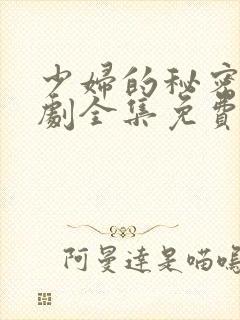 少婦的秘密
劇全集免費
阿曼達是喵嗚